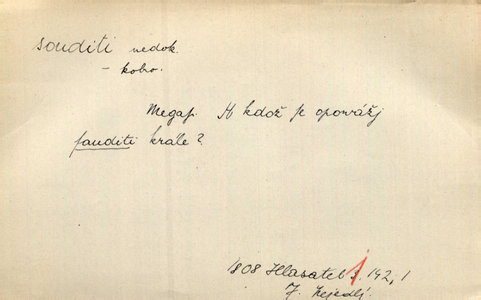 souditi nedok.
– koho.
Megaf. A kdož se opowážj
saudíti krále?
1808 Hlasatel 3. 142, 1
J. Nejedlý